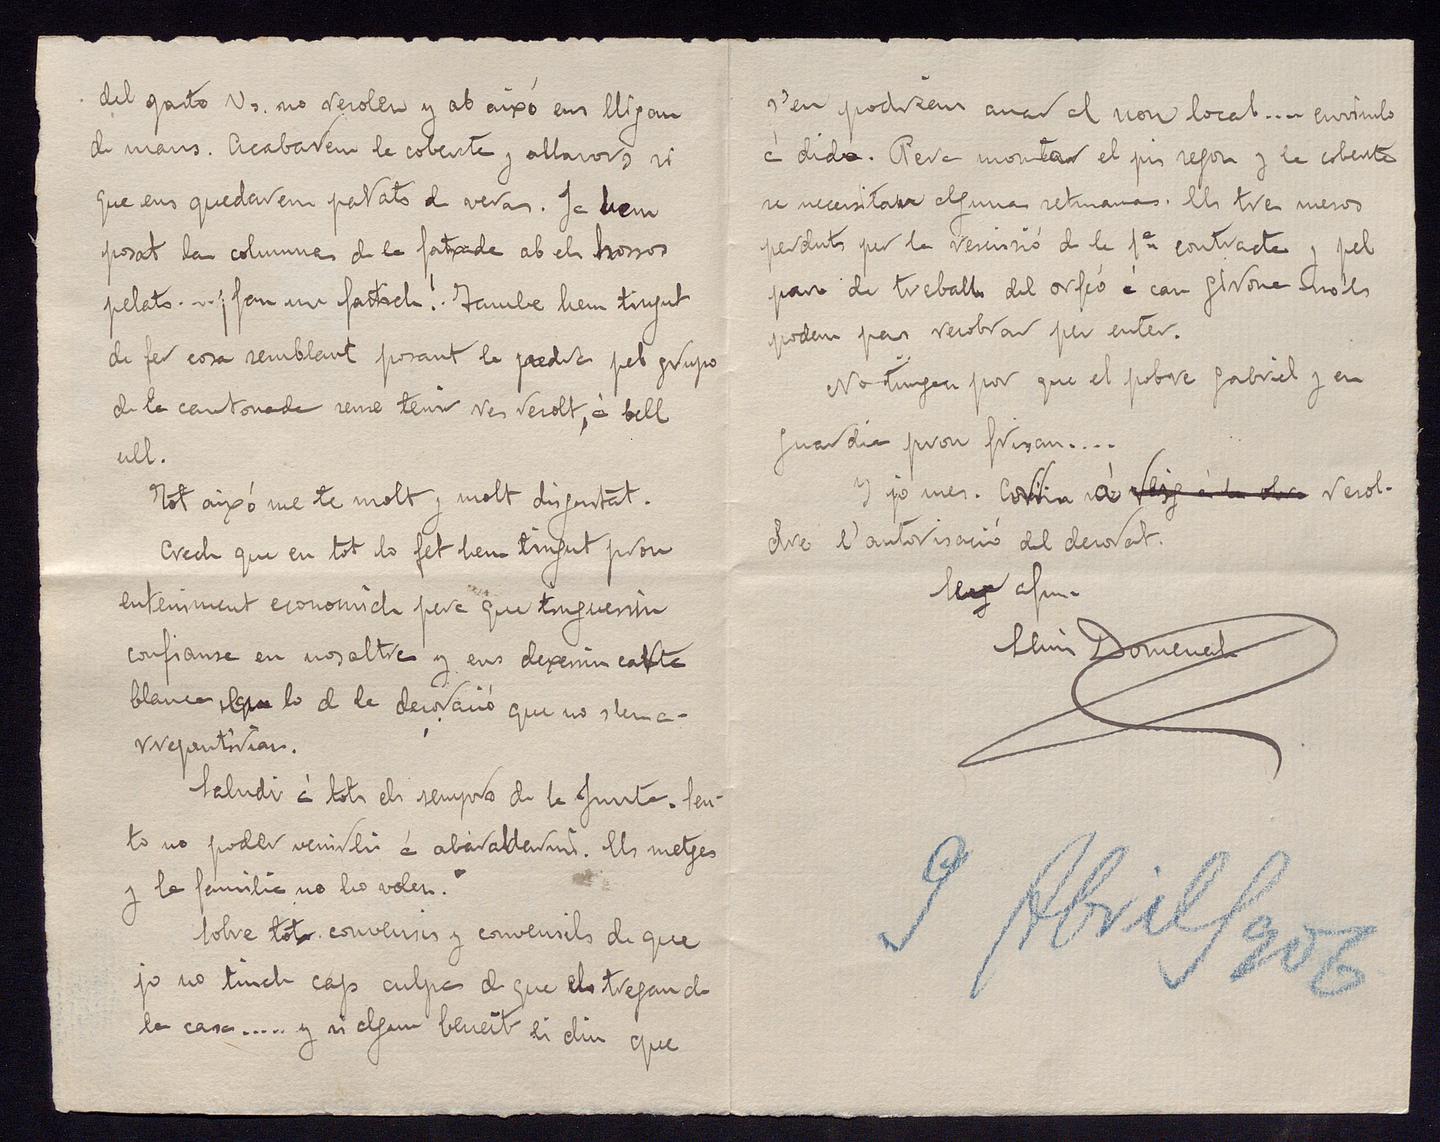 del gasto Vs. no resolen y ab aixó ens lligan
de mans. Acabarem la coberta y allavors si
que ens quedarem parats de veras. Ja hem
posat las columnas de la fatxada ab els trossos
pelats ... ¡fan un fàstich! També hem tingut
de fer cosa semblant posant la pedra pel grupo
de la cantonada sense tenir res resolt, á bell
ull.
Tot aixó me te molt y molt disgustat.
Crech que en tot lo fet hem tingut prou
enteniment economich pera que tinguessin
confiansa en nosaltres y ens dexessin carta
blanca lo de la decoració que no s'en a-
rrepentirian.
Saludi á tots els senyors de la Junta. Sen-
to no poder venirli á abarallarmi. Els metges
y la familia no ho volen.
Sobre tot convensis y convensils de que
jo no tinch cap culpa de que els tregan de
la casa ..... y si algun beneit li diu que
s'en podrien anar al nou local .... envíinlo
á dida. Pera montar el pis segon y la coberta
se necesitan algunas setmanas. Els tres mesos
perduts per la rescissió de la 1ª contracta y pel
paro de treballs del orfeó á can Girona no 'ls
podem pas recobrar per enter.
No tingan por que el pobre Gabriel y en
Guardia prou frisan....
Y jo mes. Corri á resol-
dre l'autorisació del decorat.
Seu afm.
Lluis Domenech
9 Abril 906